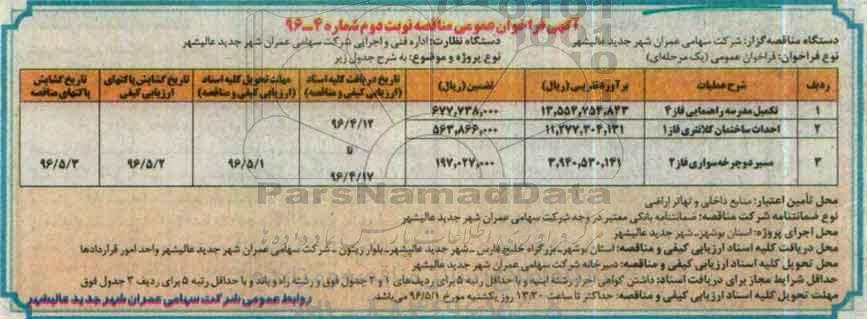 آگهی فراخوان عمومی مناقصه نوبت دوم شماره ۴-۹۶
دستگاه مناقصه گزار: شرکت سهامی عمران شهر جدید عالیشهر
دستگاه نظارت: اداره فنی و اجرایی شرکت سهامی عمران شهر جدید عالیشهر
نوع فراخوان: فراخوان عمومی (یک مرحله‌ای)
نوع پروژه و موضوع: به شرح جدول زیر
ردیف شرح عملیات برآورد تقریبی (ریال) تضمین (ریال) تاریخ دریافت کلیه اسناد (ارزیابی کیفی و مناقصه) مهلت تحویل کلیه اسناد (ارزیابی کیفی و مناقصه) تاریخ گشایش پاکتهای ارزیابی کیفی تاریخ گشایش پاکتهای مناقصه
۱ تکمیل مدرسه راهنمایی فاز ۴ ۱۳,۵۵۴,۷۵۴,۸۴۳ ۶۷۷,۷۳۸,۰۰۰
۲ احداث ساختمان کلانتری فاز ۱ ۱۱,۲۷۷,۳۰۴,۱۳۱ ۵۶۳,۸۶۶,۰۰۰
۳ مسیر دوچرخه سواری فاز ۲ ۳,۹۴۰,۵۳۰,۱۴۱ ۱۹۷,۰۲۷,۰۰۰
۹۶/۴/۱۲ تا ۹۶/۴/۱۷ ۹۶/۵/۱ ۹۶/۵/۲ ۹۶/۵/۳
ParsNamadData
محل تأمین اعتبار: منابع داخلی و تهاتر اراضی
نوع ضمانتنامه شرکت مناقصه: ضمانتنامه بانکی معتبر در وجه شرکت سهامی عمران شهر جدید عالیشهر
محل اجرای پروژه: استان بوشهر- شهر جدید عالیشهر
محل دریافت کلیه اسناد ارزیابی کیفی و مناقصه: استان بوشهر- بزرگراه خلیج فارس - شهر جدید عالیشهر- بلوار زیتون - شرکت سهامی عمران شهر جدید عالیشهر واحد امور قراردادها
محل تحویل کلیه اسناد ارزیابی کیفی و مناقصه: دبیرخانه شرکت سهامی عمران شهر جدید عالیشهر
حداقل شرایط مجاز برای دریافت اسناد: داشتن گواهی احراز رشته ابنیه و با حداقل رتبه ۵ برای ردیف‌های ۱ و ۲ جدول فوق و رشته راه و باند و با حداقل رتبه ۵ برای ردیف ۳ جدول فوق
مهلت تحویل کلیه اسناد ارزیابی کیفی و مناقصه: حداکثر تا ساعت ۱۳:۳۰ روز یکشنبه مورخ ۹۶/۵/۱ می‌باشد.
روابط عمومی شرکت سهامی عمران شهر جدید عالیشهر